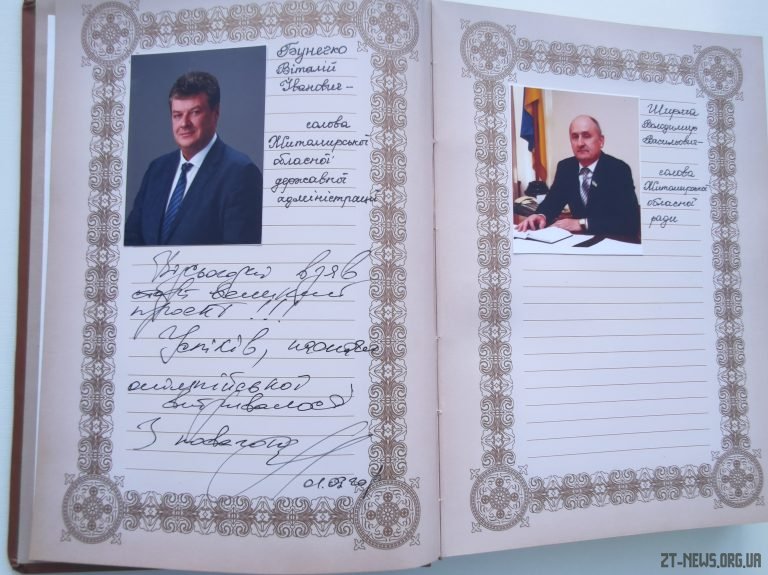 Бунечко
Віталій
Іванович-
голова
Житомирської
обласної
державної
адміністрації
взяв
великий
проєкт !!!
Успіхів,
олімпійської
витривалості
З повагою
Ширма
Володимир
Васильович-
голова
Житомирської
обласної
ради
ZT-NEWS.ORG.UA